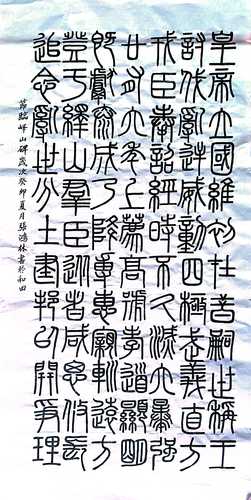 皇帝立國維初在昔嗣世稱王
討伐亂逆威動四極武義直方
戎臣奉詔經時不久滅六暴強
廿有六年上薦高號孝道顯明
既獻泰成乃降專惠寴巡遠方
登于繹山群臣從者咸思攸長
追念亂世分土建邦以開爭理
節臨嶧山碑歲次癸卯夏月張鴻林書於和田